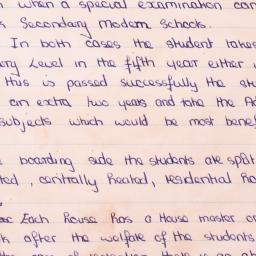 when a special examination can
Secondary Modern Schools.
In both cases the student takes
Level in the fifth year either
this is passed successfully the
an extra two years and take the
subjects which would be most
boarding side the students are split
centrally heated, residential
Each house has a House master or
after the welfare of the students